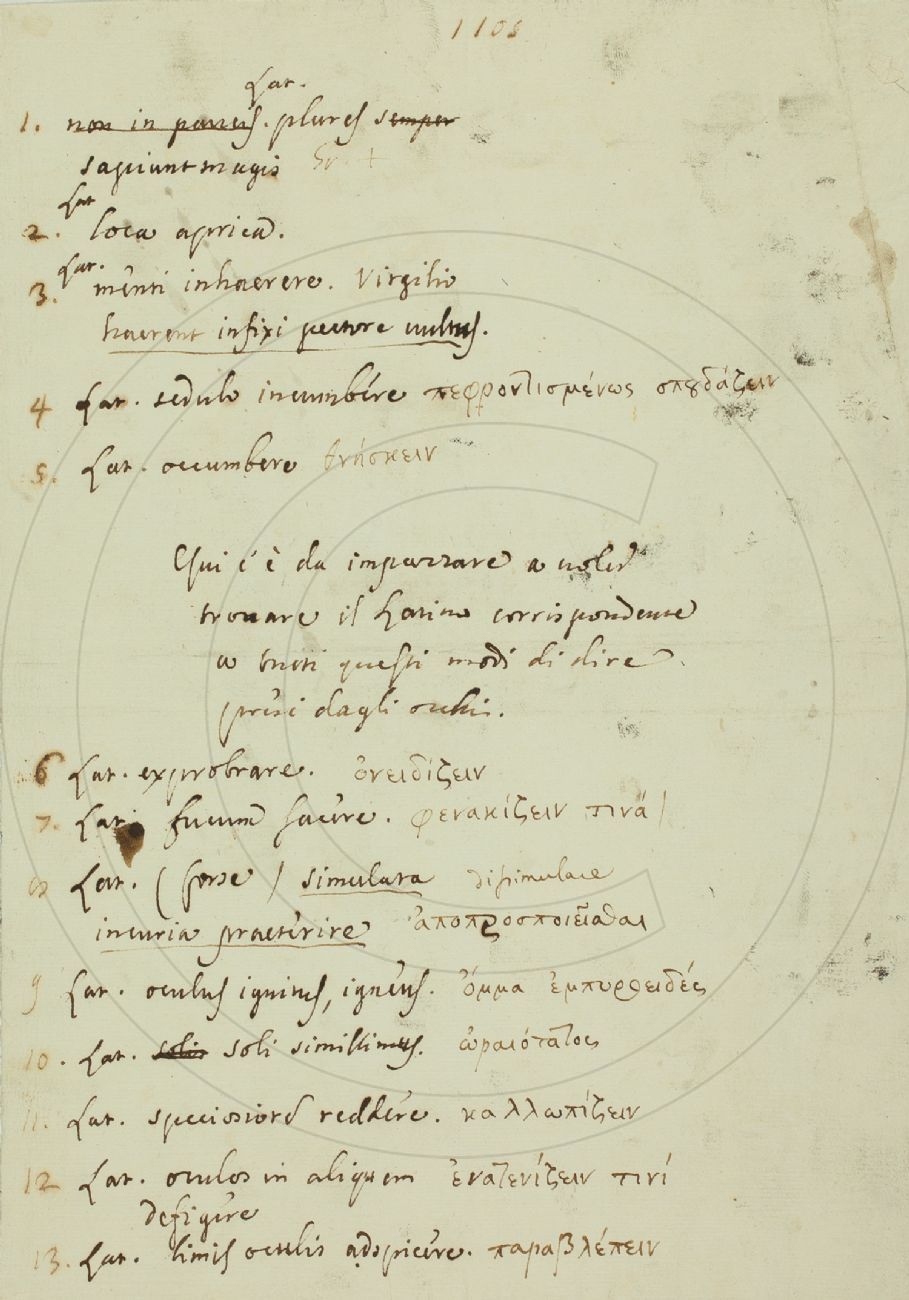 1108
Lat.
1. non in paucis. plures semper
sapiunt magis Gr. +
Lat
2. loca aprica.
Lat.
3. menti inhaerere. Virgilio
haerent infixi pectore vultus.
4 Lat. sedulo incumbere πεφροντισμένως σπουδάζειν
5. Lat. occumbere θνήσκειν
Qui c'è da impazzare a voler
trovare il Latino corrispondente
a tutti questi modi di dire
presi dagli occhi.
6 Lat. exprobrare. ὀνειδίζειν
7. Lat. fucum facere. φενακίζειν τινά
8 Lat. (forse) simulata dissimulare
incuria praeterire ἀποπροσποιεῖσθαι
9 Lat. oculus ignitus, igneus. ὄμμα ἐμπυροειδές
10. Lat. solis soli simillimus. ὡραιότατος
11. Lat. speciosiorem reddere. καλλωπίζειν
12 Lat. oculos in aliquem ἐνατενίζειν τινί
defigere
13. Lat. limis oculis adspicere. παραβλέπειν